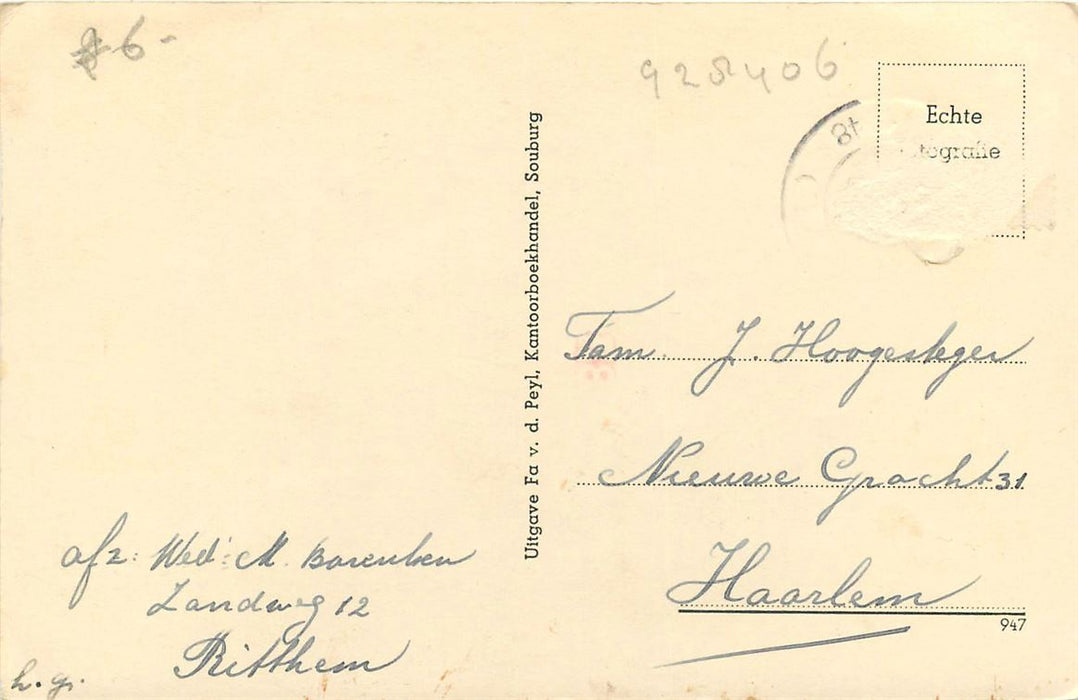 6-
928406
8t
Echte
tografie
Uitgave Fa v. d. Peyl, Kantoorboekhandel, Souburg
Fam. J. Hoogesteger
Nieuwe Gracht 31
Haarlem
947
afz: Wed: M.
Zandweg 12
Ritthem
h. g.